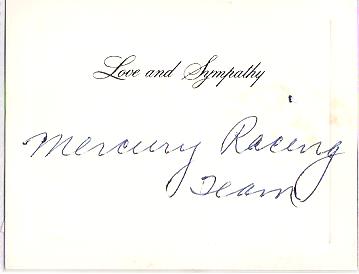 Love and Sympathy
Mercury Racing
Team